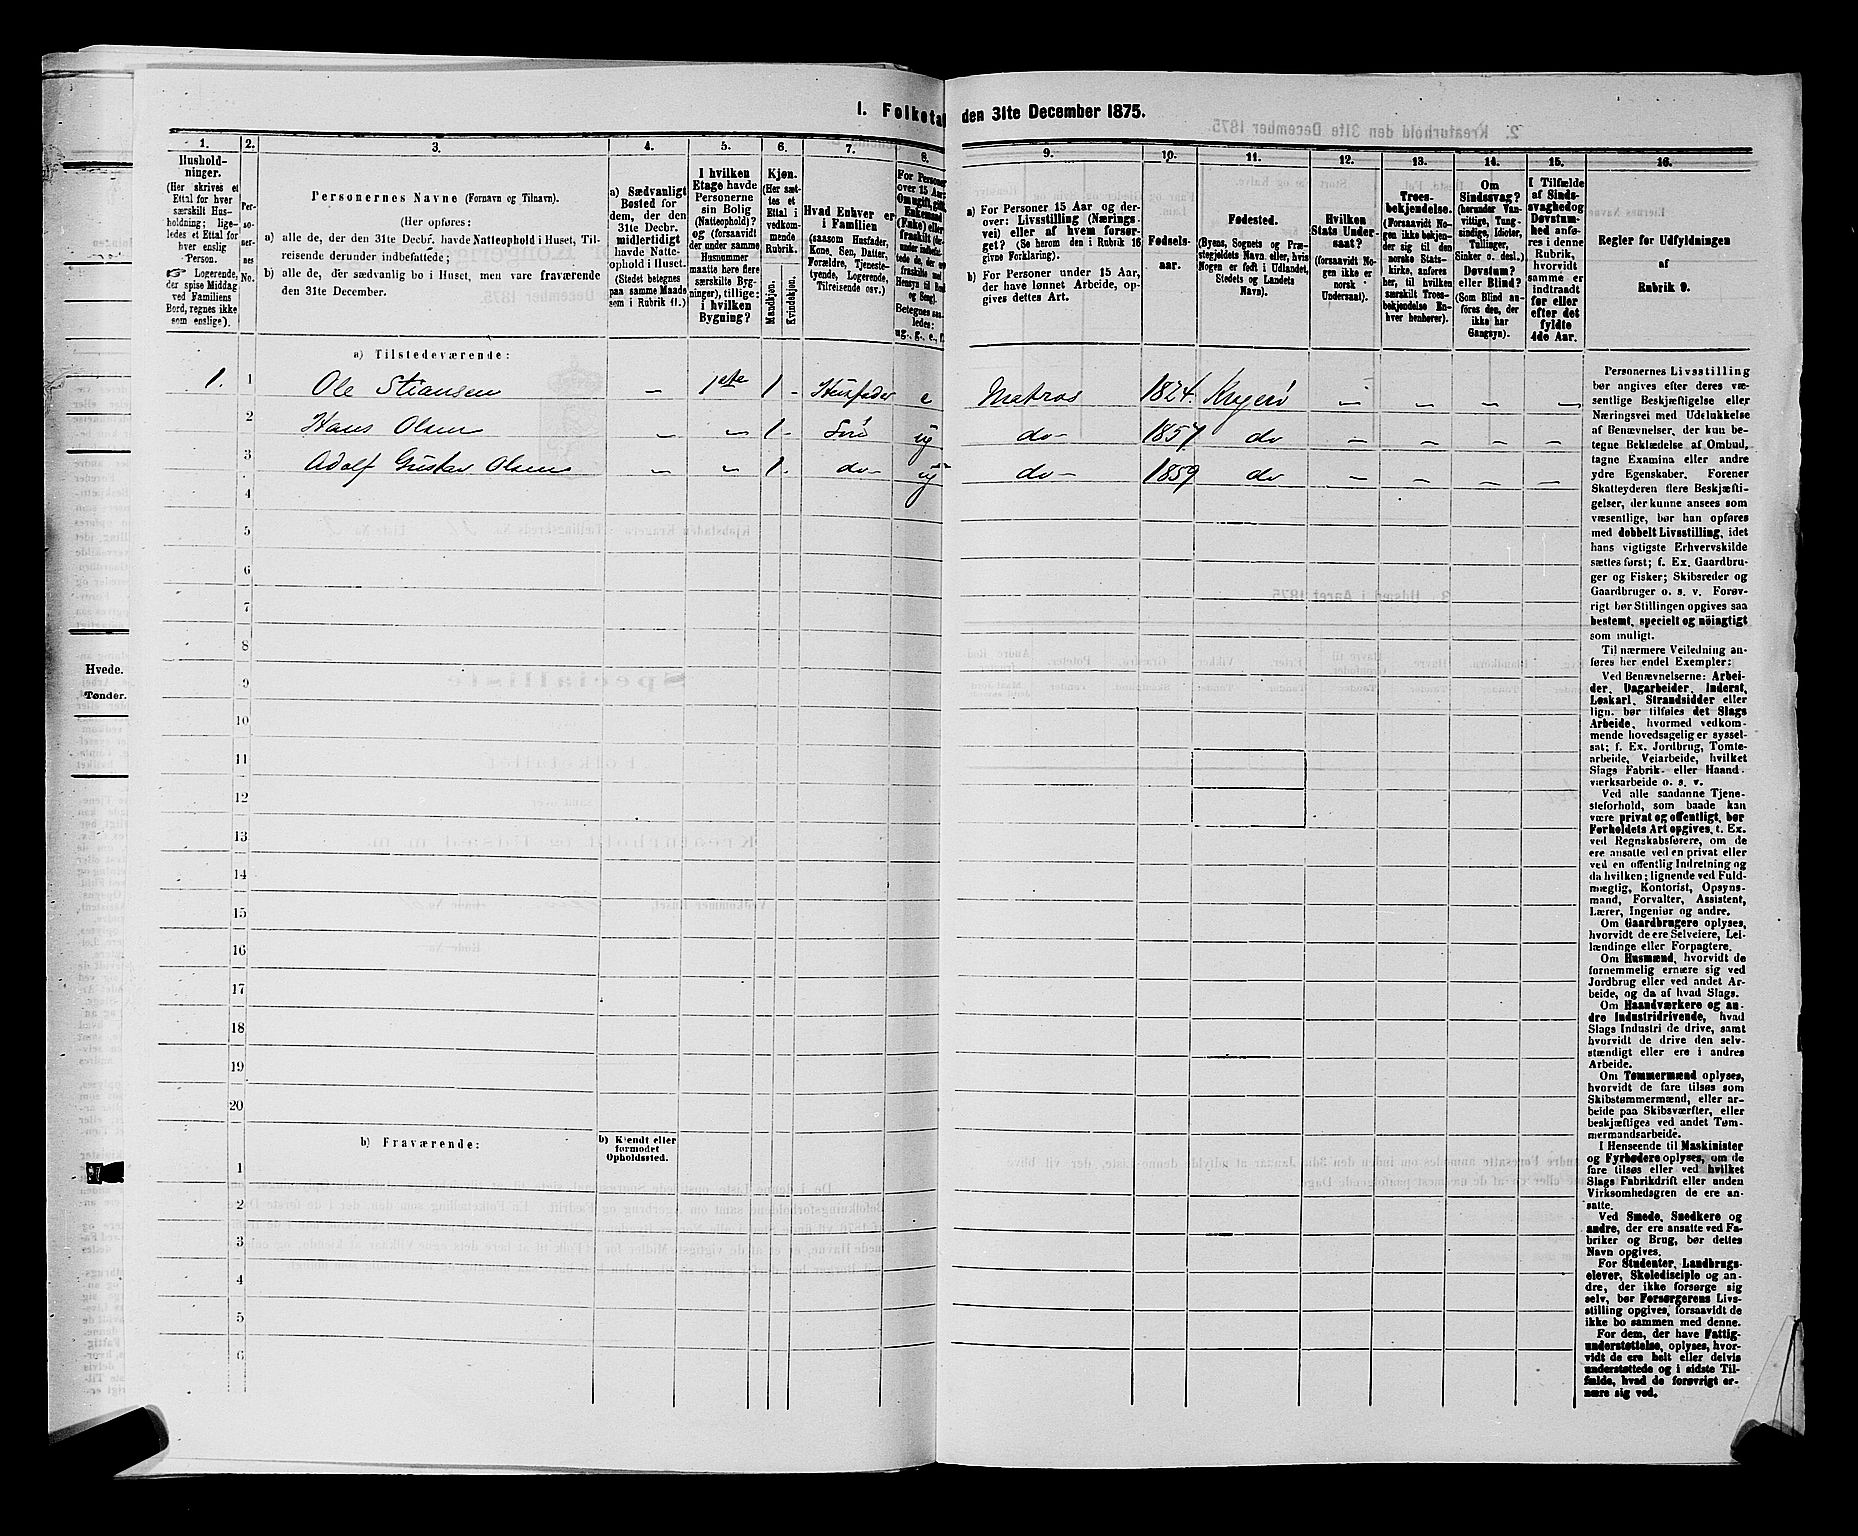 I. Folketal den 31te December 1875.
1. 2. 3. 4. 5. 6. 7. 8. 9. 10. 11. 12. 13. 14. 15. 16.
Hushold-
ninger.
(Her skrives et
Ettal for hver
særskilt Hus-
holdning; lige-
ledes et Ettal for
hver enslig
Person.
☞ Logerende,
der spise Middag
ved Familiens
Bord, regnes ikke
som enslige).
Per-
so-
ner-
nes
No.
Personernes Navne (Fornavn og Tilnavn).
(Her opføres:
a) alle de, der den 31te Decbr. havde Natteophold i Huset, Til-
reisende derunder indbefattede;
b) alle de, der sædvanlig bo i Huset, men vare fraværende
den 31te December.
a) Sædvanligt
Bosted for
dem, der den
31te Decbr.
midlertidigt
havde Natte-
ophold i Huset.
(Stedet betegnes
paa samme Maade
som i Rubrik 11.)
I hvilken
Etage havde
Personerne
sin Bolig
(Natteophold)?
og (forsaavidt
der under samme
Husnummer
maatte here flere
særskilte Byg-
ninger), tillige:
i hvilken
Bygning?
Kjøn.
(Her sæt-
tes et
Ettal i
vedkom-
mende
Rubrik.
Mandkjøn.
Kvindekjøn.
Hvad Enhver er
i Familien
(saasom Husfader,
Kone, Søn, Datter,
Forældre, Tjeneste-
tyende, Logerende,
Tilreisende osv.)
For Personer
over 15 Aar:
Om ugift, gift,
Enkemand
(Enke) eller
fraskilt
Betegnes saa-
ledes:
ug., g., e., f.
a) For Personer 15 Aar og der-
over: Livsstilling (Nærings-
vei) eller af hvem forsør-
get? (Se herom den i Rubrik 16
givne Forklaring).
b) For Personer under 15 Aar,
der have lønnet Arbeide, op-
gives dettes Art.
Fødsels-
aar.
Fødested.
(Byens, Sognets og Præ-
stegjeldets Navn, eller, hvis
Nogen er født i Udlandet,
Stedets og Landets
Navn).
Hvilken
Stats Under-
saat?
(forsaavidt No-
gen ikke er
norsk
Undersaat).
Troes-
bekjendelse.
(Forsaavidt No-
gen ikke bekjen-
der sig til den
norske Stats-
kirke, anføres
her, til hvilken
særskilt Troes-
bekjendelse En-
hver henhører).
Om
Sindssvag?
(herunder Van-
vittige, Tung-
sindige, Idioter,
Tullinger,
Sinker o. desl.)
Døvstum?
eller Blind?
(Som Blind an-
føres den, der
ikke har
Gangsyn).
I Tilfælde
af Sinds-
svaghed og
Døvstum-
hed anfø-
res i denne
Rubrik,
hvorvidt
samme er
indtraadt
før eller
efter det
fyldte
4de Aar.
Regler for Udfyldningen
af
Rubrik 9.
a) Tilstedeværende:
1. 1 Ole Stiansen — 1ste 1 - Husfader e Matros 1824. Kragerø — — — —
2 Hans Olsen — — 1 - Søn ug do— 1857 do — — — —
3 Adolf Gustav Olsen — — 1 - do— ug do— 1859 do — — — —
4
5
6
7
8
9
10
11
12
13
14
15
16
17
18
19
20
b) Fraværende:
b) Kjendt eller
formodet
Opholdssted.
1
2
3
4
5
6
Personernes Livsstilling
bør angives efter deres væ-
sentlige Beskjæftigelse eller
Næringsvei med Udelukkelse
af Benævnelser, der kun be-
tegne Beklædelse af Ombud,
tagne Examina eller andre
ydre Egenskaber. Forener
Skatteyderen flere Beskjæfti-
gelser, der kunne ansees som
væsentlige, bør han opføres
med dobbelt Livsstilling, idet
hans vigtigste Erhvervskilde
sættes først; f. Ex. Gaardbru-
ger og Fisker; Skibsreder og
Gaardbruger o. s. v. Forøv-
rigt bør Stillingen opgives saa
bestemt, specielt og nöiagtigt
som muligt.
Til nærmere Veiledning an-
føres her endel Exempler:
Ved Benævnelserne: Arbei-
der, Dagarbeider, Inderst,
Løskarl, Strandsidder eller
lign. bør tilføies det Slags
Arbeide, hvormed vedkom-
mende hovedsagelig er syssel-
sat; f. Ex. Jordbrug, Tomte-
arbeide, Veiarbeide, hvilket
Slags Fabrik- eller Haand-
værksarbeide o. s. v.
Ved alle saadanne Tjene-
steforhold, som baade kan
være privat og offentligt, bør
Forholdets Art opgives, t. Ex.
ved Regnskabsførere, om de
ere ansatte ved en privat eller
ved en offentlig Indretning og
da hvilken; lignende ved Fuld-
mægtig, Kontorist, Opsyns-
mand, Forvalter, Assistent,
Lærer, Ingeniør og andre.
Om Gaardbrugere oplyses,
hvorvidt de ere Selveiere, Lei-
lændinge eller Forpagtere.
Om Husmænd, hvorvidt de
fornemmelig ernære sig ved
Jordbrug eller ved andet Ar-
beide, og da af hvad Slags.
Om Haandværkere og an-
dre Industridrivende, hvad
Slags Industri de drive, samt
hvorvidt de drive den selv-
stændigt eller ere i andres
Arbeide.
Om Tømmermænd oplyses,
hvorvidt de fare tilsøs som
Skibstømmermænd, eller ar-
beide paa Skibsværfter, eller
beskjæftiges ved andet Tøm-
mermandsarbeide.
I Henseende til Maskinister
og Fyrbødere oplyses, om de
fare tilsøs eller ved hvilket
Slags Fabrikdrift eller anden
Virksomhedsgren de ere an-
satte.
Ved Smede, Snedkere og
andre, der ere ansatte ved Fa-
briker og Brug, bør dettes
Navn opgives.
For Studenter, Landbrugs-
elever, Skoledisciple og an-
dre, der ikke forsørge sig
selv, bør Forsørgerens Livs-
stilling opgives, forsaavidt de
ikke bo sammen med denne.
For dem, der have Fattig-
understøttelse, oplyses, hvor-
vidt de ere helt eller delvis
understøttede og i sidste Til-
fælde, hvad de forøvrigt er-
nære sig ved.
Hvede.
Tønder.